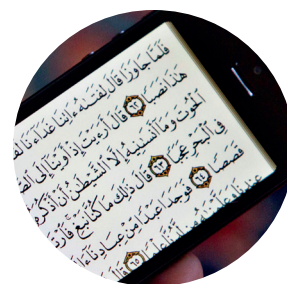 فَلَمَّا جَاوَزَا قَالَ لِفَتَىٰهُ ءَاتِنَا غَدَآءَنَا لَقَ
هَٰذَا نَصَبًا ٦٢ قَالَ أَرَءَيْتَ إِذْ أَوَيْنَآ إِلَى ٱلصَّ
ٱلْحُوتَ وَمَآ أَنسَىٰنِيهُ إِلَّا ٱلشَّيْطَٰنُ أَنْ أَذْكُرَهُ
فِي ٱلْبَحْرِ عَجَبًا ٦٣ قَالَ ذَٰلِكَ مَا كُنَّا نَبْغِ فَٱرْتَدَّ
قَصَصًا ٦٤ فَوَجَدَا عَبْدًا مِّنْ عِبَادِنَآ ءَاتَ
٦٥ قَالَ